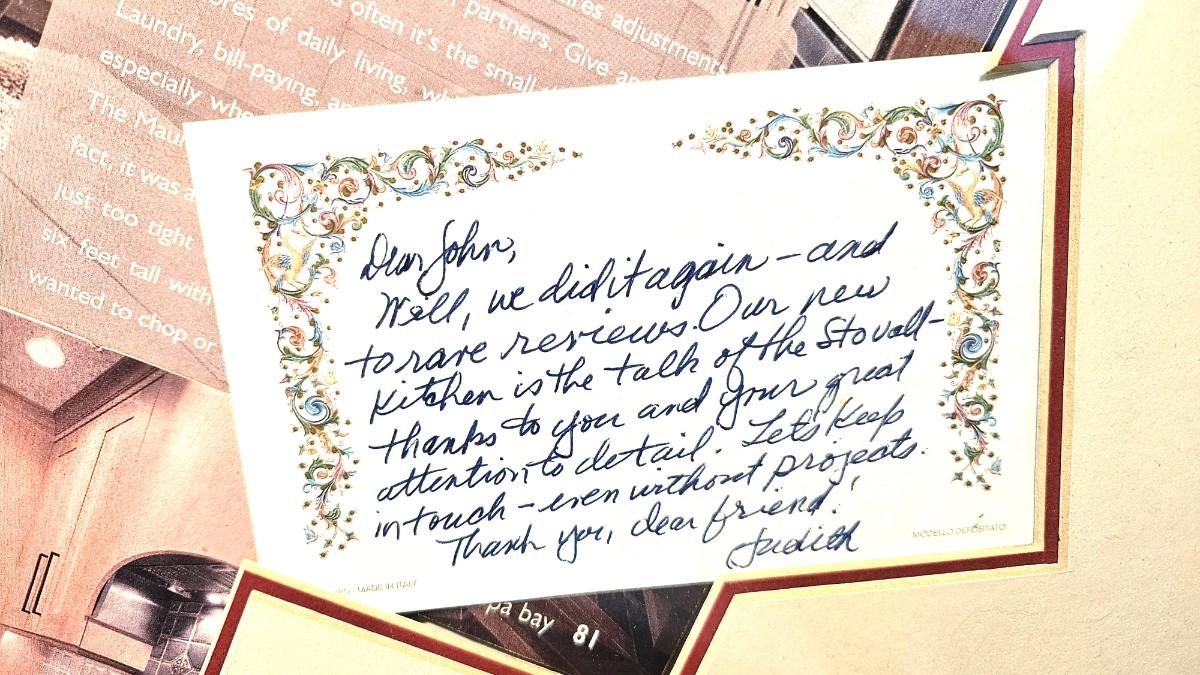 ires adjustments
often it's the small
partners. Give an
ores of daily living, wh
Laundry, bill-paying, an
especially whe
The Mau
fact, it was a
just too tight
six feet tall with
wanted to chop or
Dear John,
Well, we did it again - and
to rave reviews. Our new
kitchen is the talk of the Stovall -
thanks to you and your great
attention to detail. Let's keep
in touch - even without projects.
Thank you, dear friend!
Judith
MADE IN ITALY
MODELLO DEPOSITATO
pa bay 81